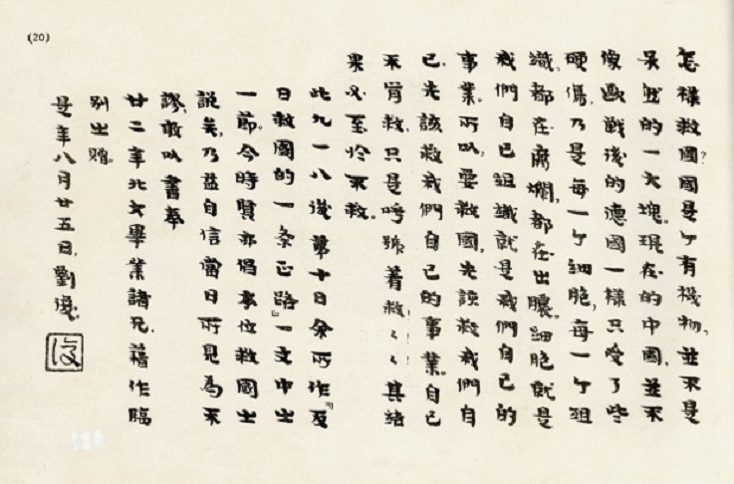 (20)
怎樣救國?國是个有機物,並不是
呆板的一大塊。現在的中國,並不
像歐戰後的德國一樣只受了些
硬傷,乃是每一个細胞,每一个組
織,都在腐爛,都在出膿。細胞就是
我們自己,組織就是我們自己的
事業。所以,要救國,先該救我們自
己,先該救我們自己的事業。自己
不肯救,只是呼號着救!救!其結
果必至於不救。
此九一八後第十日余所作『反
日救國的一条正路』一文中之
一節。今時賢亦倡本位救國之
說矣,乃益自信當日所見為不
謬,敢以書奉
廿二年北大畢業諸兄,藉作臨
別之贈。
是年八月廿五日,劉復
復